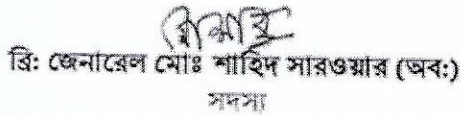 ব্রি: জেনারেল মোঃ শাহিদ সারওয়ার (অব:)
সদস্য